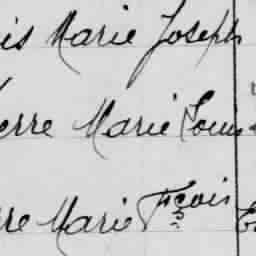 is Marie Joseph
erre Marie Louis
rre Marie Fçois